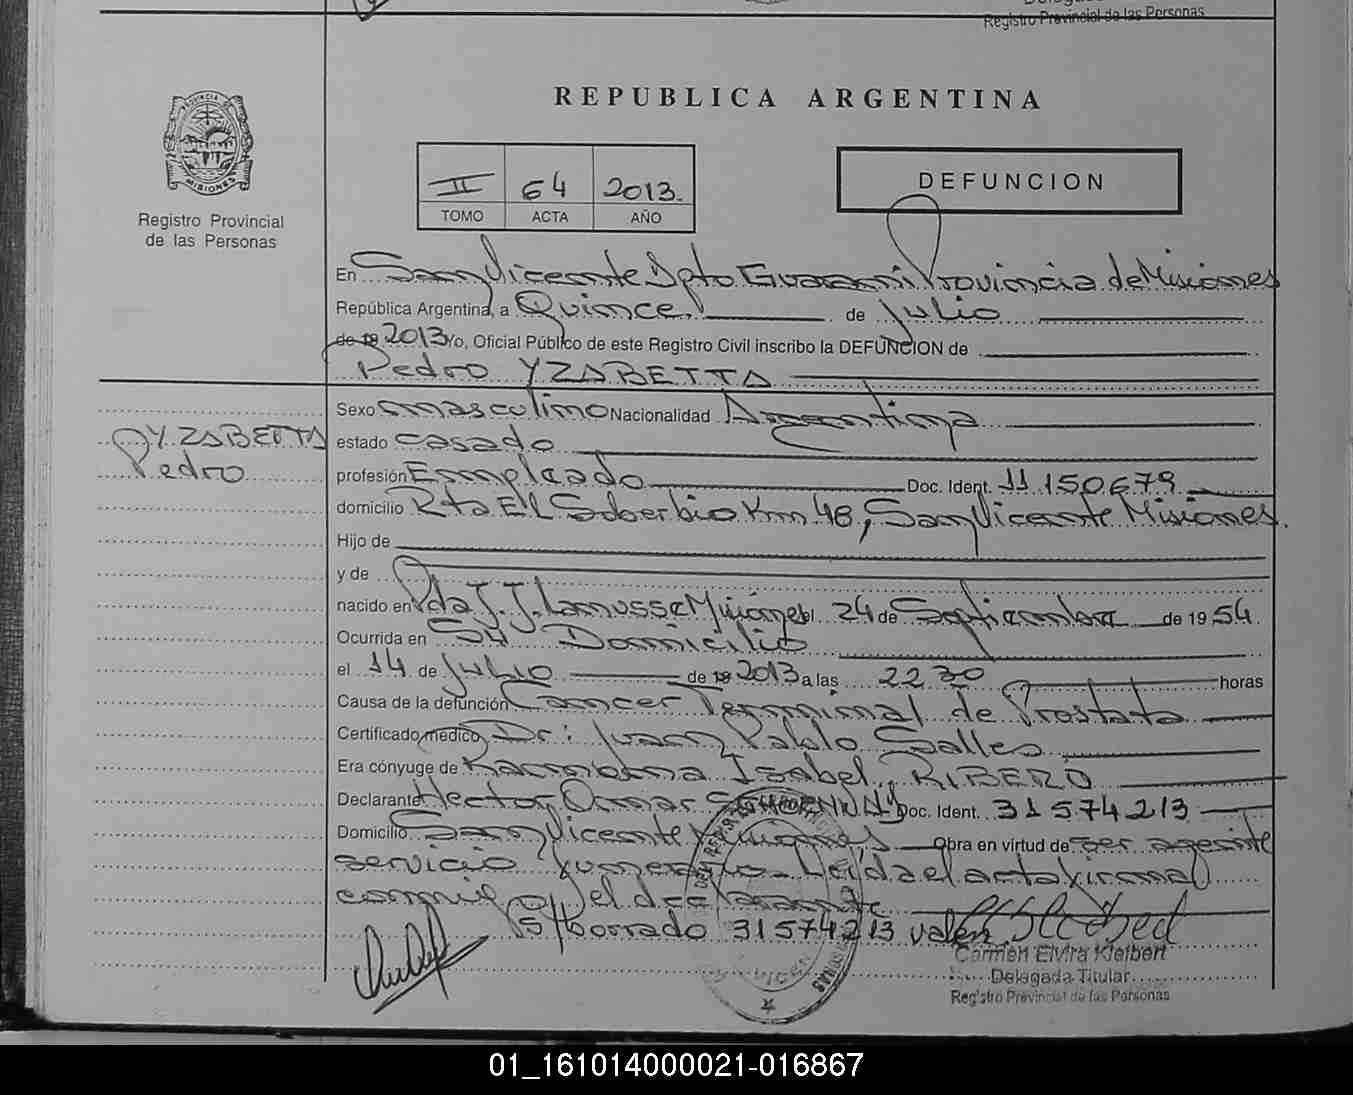 Registro Provincial de las Personas
REPUBLICA ARGENTINA
PROVINCIA DE
MISIONES
Registro Provincial
de las Personas
II 64 2013.
TOMO ACTA AÑO
DEFUNCION
En San Vicente Dpto Guarani Provincia de Misiones
República Argentina, a Quince de Julio
de 19 2013 Yo, Oficial Público de este Registro Civil inscribo la DEFUNCION de
Pedro YZABETTA
YZABETTA
Pedro
Sexo masculino Nacionalidad Argentina
estado casado
profesión Empleado Doc. Ident. 11 150679
domicilio Rta El Soberbio Km 48, San Vicente Misiones.
Hijo de
y de
nacido en Pda J.J. Lanusse Misiones el 24 de Septiembre de 1954.
Ocurrida en SU Domicilio
el 14 de Julio de 19 2013 a las 22 30 horas
Causa de la defunción Cancer Terminal de Prostata
Certificado médico Dr: Juan Pablo Salles
Era cónyuge de Ramona Isabel, RIBERO
Declarante Hector Omar Doc. Ident. 31574213
Domicilio San Vicente Misiones Obra en virtud de ser agente
servicio funerario. Leída el acta firma
conmigo el declarante
S/borrado 31574213 valen.
Carmen Elvira Kleibert
Delegada Titular
Registro Provincial de las Personas
01_161014000021-016867